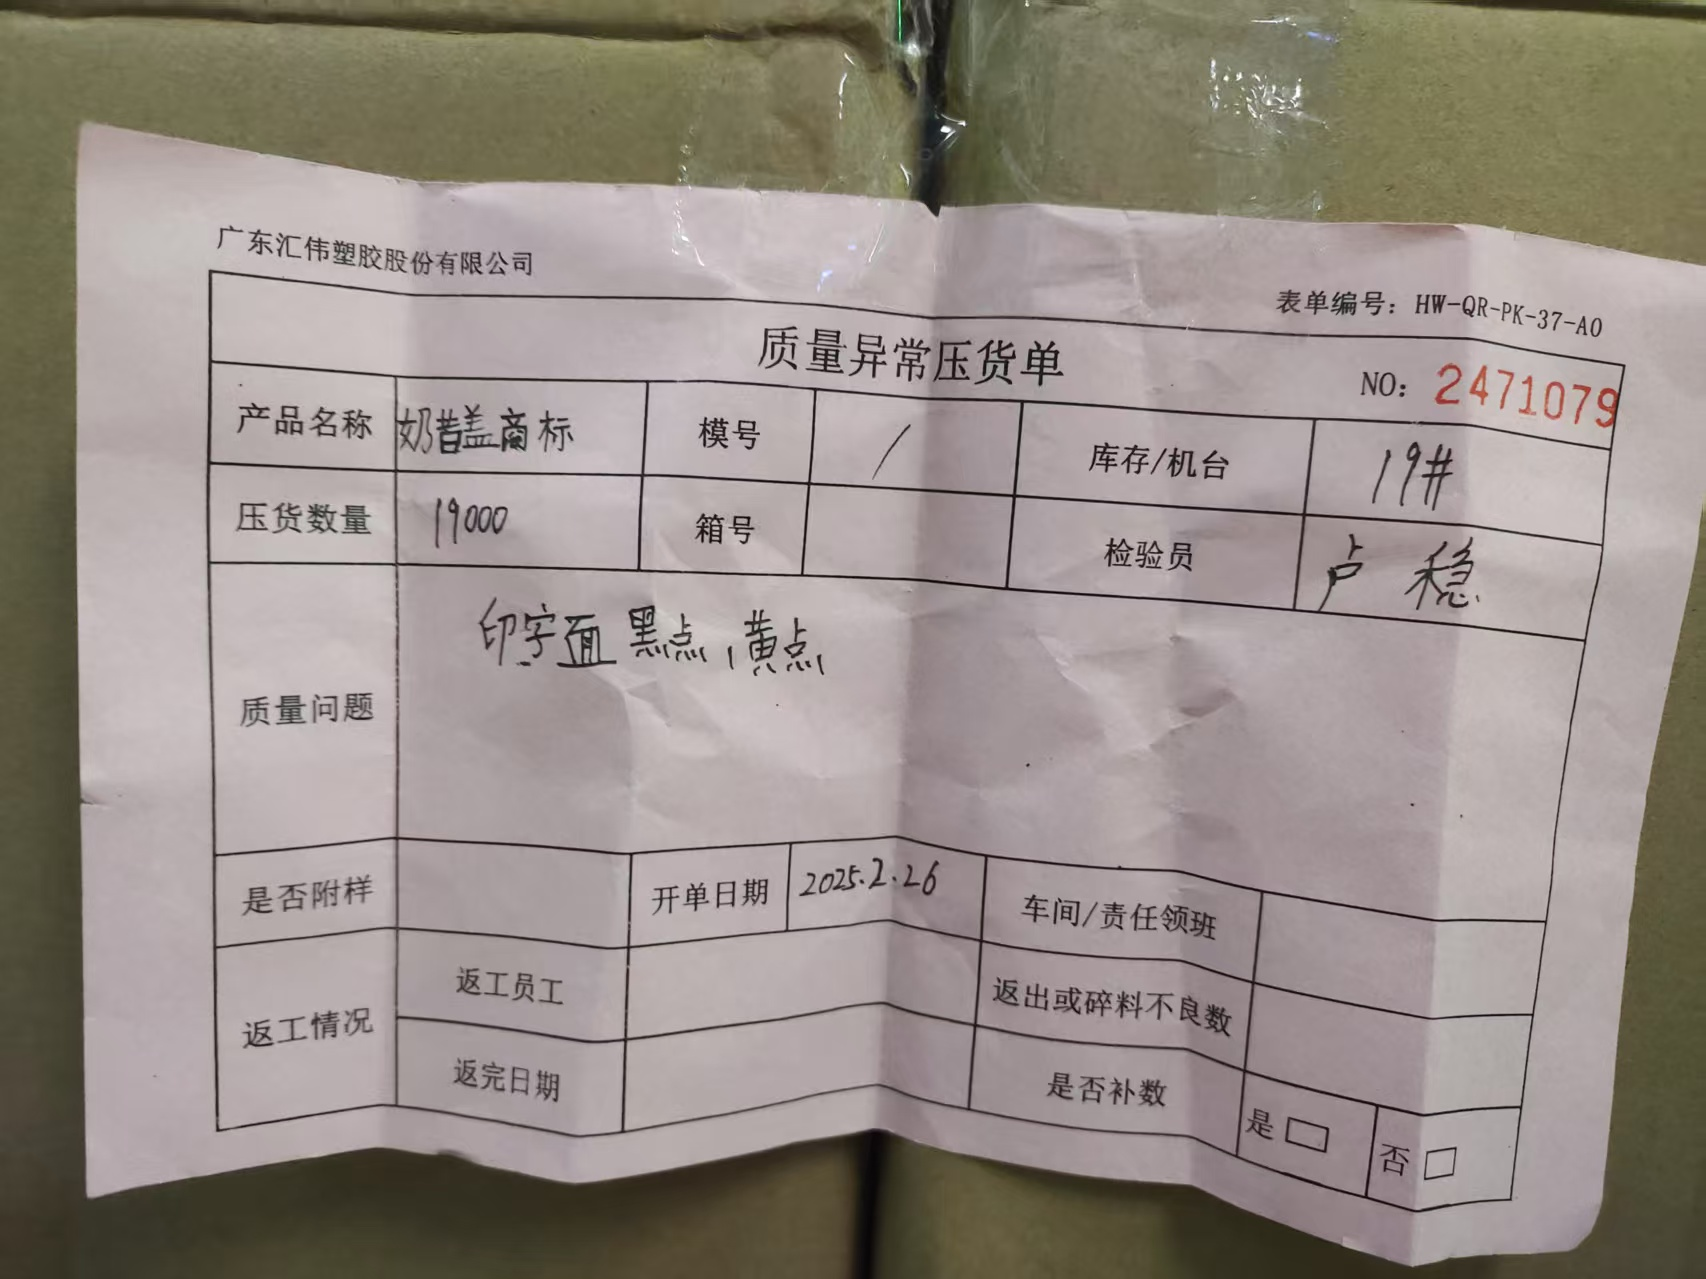 广东汇伟塑胶股份有限公司
表单编号：HW-QR-PK-37-A0
质量异常压货单
NO：2471079
产品名称 奶昔盖商标 模号 / 库存/机台 19#
压货数量 19000 箱号 检验员 卢稳
质量问题 印字面黑点,黄点
是否附样 开单日期 2025.2.26 车间/责任领班
返工情况 返工员工 返出或碎料不良数
返完日期 是否补数 是□ 否□